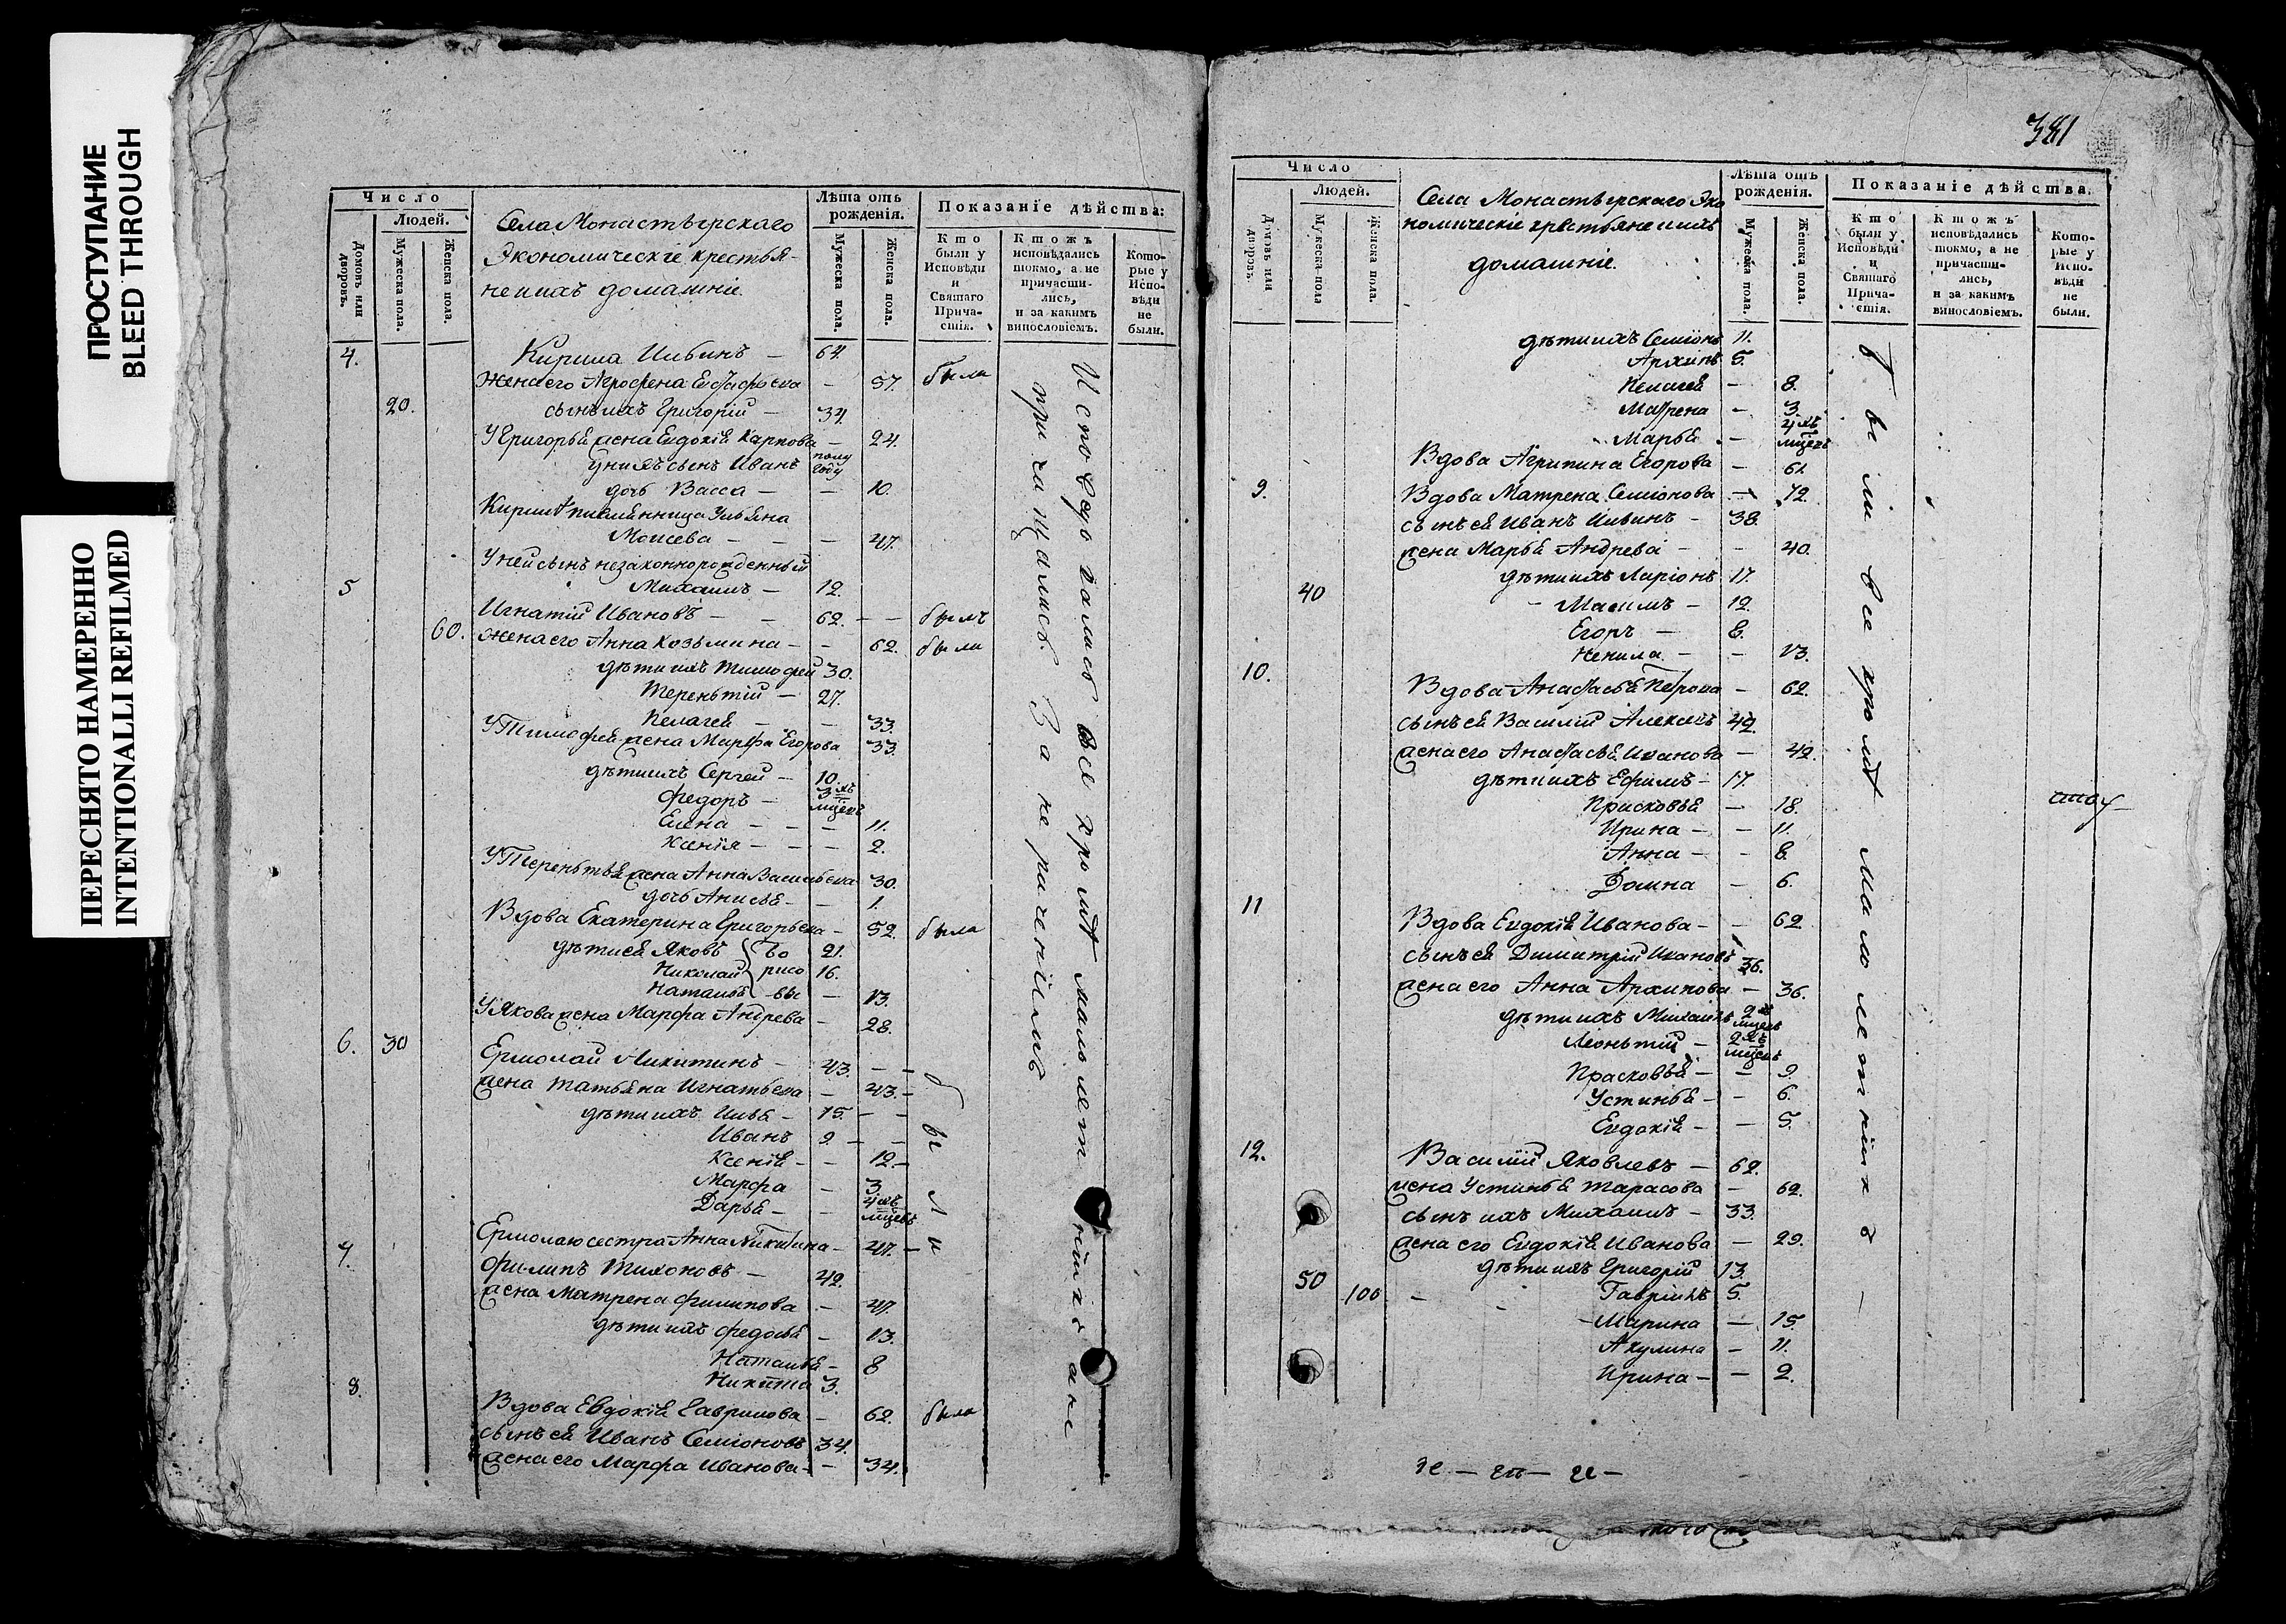 ПРОСТУПАНИЕ
BLEED THROUGH
ПЕРЕСНЯТО НАМЕРЕННО
INTENTIONALLI REFILMED
Число
Людей.
Домовъ или дворовъ.
Мужеска пола.
Женска пола.
Села Монастырскаго
Экономическіе крестья-
не и ихъ домашніе.
Лѣта отъ рожденія.
Мужеска пола.
Женска пола.
Показаніе дѣйства:
Кто были у Исповѣди и Святаго Прича-стія.
Ктожъ исповѣдались токмо, а не причасти-лись, и за какимъ винословіемъ.
Кото-рые у Испо-вѣди не были.
4. Кирила Ильинъ — 64
Жена его Агрофена — 57. была
20. сынъ ихъ Григорій — 34.
У Григорья жена Евдокія Карпова — 24.
у нихъ сынъ Иванъ полу году
дочь Васса — — 10.
племянница Ульяна
Моисева — — — 47.
У ней сынъ незаконнорожденный
5 Михаилъ — 12.
Игнатій Ивановъ — — 62. — — былъ
60. жена его Анна Козьмина — — 62. была
дѣти ихъ Тимофей 30.
Терентій — 27.
Пелагея — — 33.
У Тимофея жена Марфа Егорова 33.
дѣти ихъ Сергей — 10.
Федоръ — 3хъ мцевъ
Елена — — — 11.
Ксенія — — — 2.
У Терентья жена Анна Васильева 30.
дочь Анисья — — 1.
Вдова Екатерина Григорьева — 52. была
дѣти ея Яковъ Бо 21.
Николай рисо 16.
Наталья вы — 13.
У Якова жена Марфа Андрева — 28.
6. 30 Ермолай Никитинъ — 43. — —
жена Татьяна Игнатьева — 43. —
дѣти ихъ Илья — 15. — —
Иванъ 9 — —
Ксенія — — 12. —
Марфа — 3.
Дарья — — 4хъ мцевъ
Ермолаю сестра Анна Никитина — 47. —
7. Филипъ Тихоновъ — 42.
жена Матрена Филипова — 47.
дѣти ихъ Федосья — 13.
Наталья — 8
Никита 3.
8. Вдова Евдокія Гаврилова — 62. была
сынъ ея Иванъ Семіоновъ 34.
жена его Марфа Иванова — — 34.
были
Исповедовались все кромѣ малолетнихъ а не
причащались. За нераченіемъ
381
Число
Людей.
Домовъ или дворовъ.
Мужеска пола
Женска пола.
Села Монастырскаго Эко
номическіе крестьяне и ихъ
домашніе.
Лѣта отъ рожденія.
Мужеска пола.
Женска пола.
Показаніе дѣйства.
Кто были у Исповѣди и Святаго Прича-стія.
Ктожъ исповѣдались токмо, а не причасти-лись, и за какимъ винословіемъ.
Кото-рые у Испо-вѣди не были.
дѣти ихъ Семіонъ 11.
Архипъ 5.
Пелагея — 8.
Матрена — 3.
Марья — 4хъ мцевъ
Вдова Агрипина Егорова — 61
9. Вдова Матрена Семіонова — 72.
сынъ ея Иванъ Ильинъ — 38.
жена Марья Андрева — — 40.
дѣти ихъ Ларіонъ 17.
40 Максимъ — 12.
Егоръ — 8.
Ненила — — 13.
10. Вдова Анастасья Петрова — 62.
сынъ ея Василій 42.
жена его Анастасья Иванова — 42.
дѣти ихъ Ефимъ — 17.
Прасковья — 18.
Ирина — — 11.
Анна — — 8.
Домна — 6.
11 Вдова Евдокія Иванова — — 62
сынъ ея Димитрій Ивановъ 36.
жена его Анна Архипова — 36.
дѣти ихъ Михаилъ 2хъ мцевъ
Леонтій — 2хъ мцевъ
Прасковья — — 9
Устинья — — 6.
Евдокія — — 5.
12. Василій Яковлевъ — 62.
жена Устинья Тарасова — 62.
сынъ ихъ Михаилъ — 33.
жена его Евдокія Иванова — 29.
дѣти ихъ Григорій 13.
50 100 Гавріилъ 5.
Марина — 15.
Акулина — 11.
Ирина — — 2.
были все кромѣ малолетнихъ —